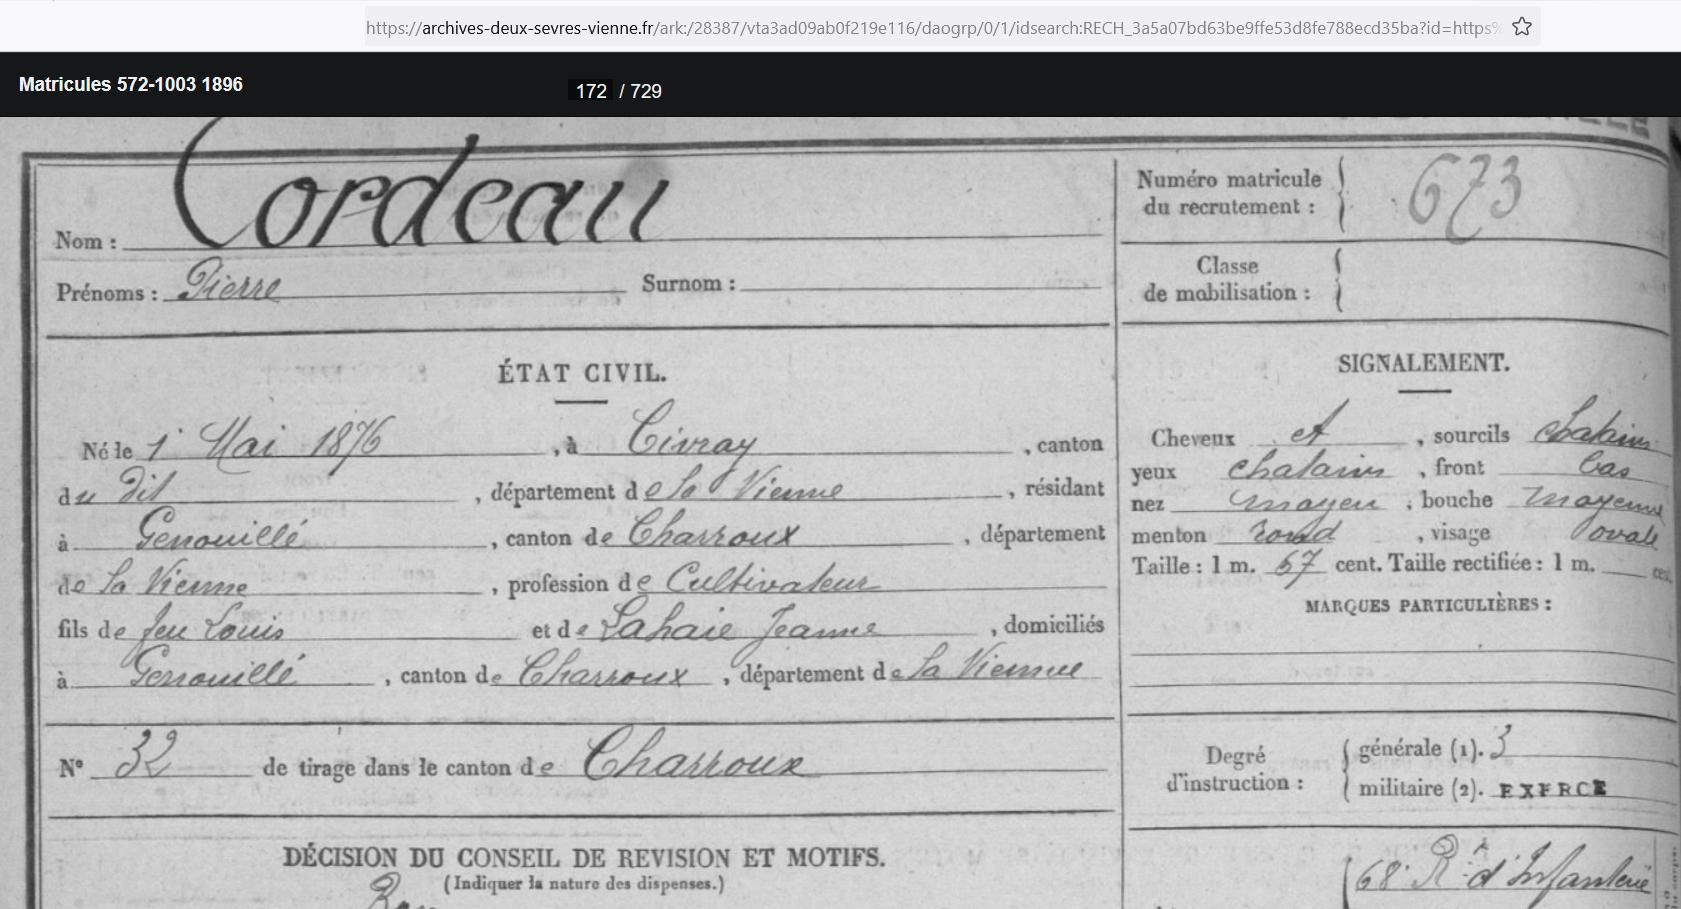 https://archives-deux-sevres-vienne.fr/ark:/28387/vta3ad09ab0f219e116/daogrp/0/1/idsearch:RECH_3a5a07bd63be9ffe53d8fe788ecd35ba?id=https%
Matricules 572-1003 1896
172 / 729
Nom : Cordeau
Prénoms : Pierre Surnom :
Numéro matricule du recrutement : 673
Classe de mobilisation :
ÉTAT CIVIL.
Né le 1er Mai 1876, à Civray, canton
du dit, département de la Vienne, résidant
à Genouillé, canton de Charroux, département
de la Vienne, profession de Cultivateur
fils de feu Louis et de Lahaie Jeanne, domiciliés
à Genouillé, canton de Charroux, département de la Vienne
N° 32 de tirage dans le canton de Charroux
DÉCISION DU CONSEIL DE REVISION ET MOTIFS.
(Indiquer la nature des dispenses.)
SIGNALEMENT.
Cheveux et, sourcils chatains
yeux chatains, front bas
nez moyen, bouche moyenne
menton rond, visage ovale
Taille : 1 m. 67 cent. Taille rectifiée : 1 m. cent.
MARQUES PARTICULIÈRES :
Degré d'instruction :
générale (1). 3
militaire (2). EXERCÉ
68e Rt d'Infanterie